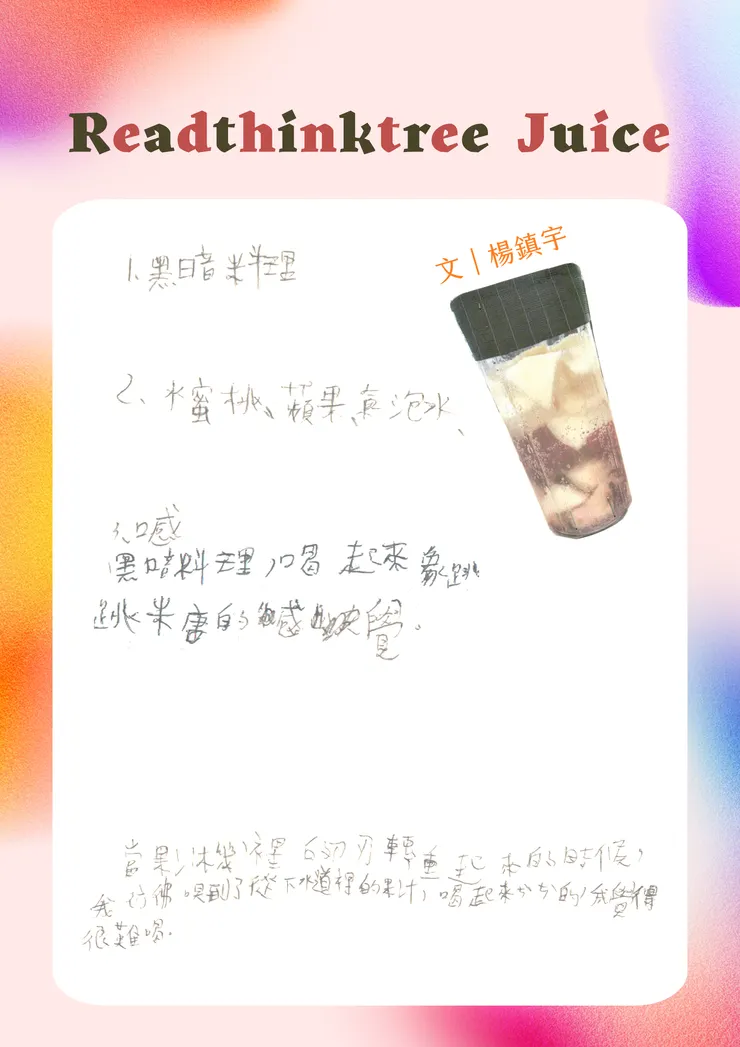 Readthinktree Juice
文｜楊鎮宇
1.黑暗料理
2、水蜜桃、蘋果、氣泡水、
3、口感
黑暗料理,喝起來象跳
跳米唐的感覺。
當果汁機裡的刀轉重起來的時候,
我彷彿喝到了從下水道裡的果汁,喝起來分分的,我覺得
很難喝.